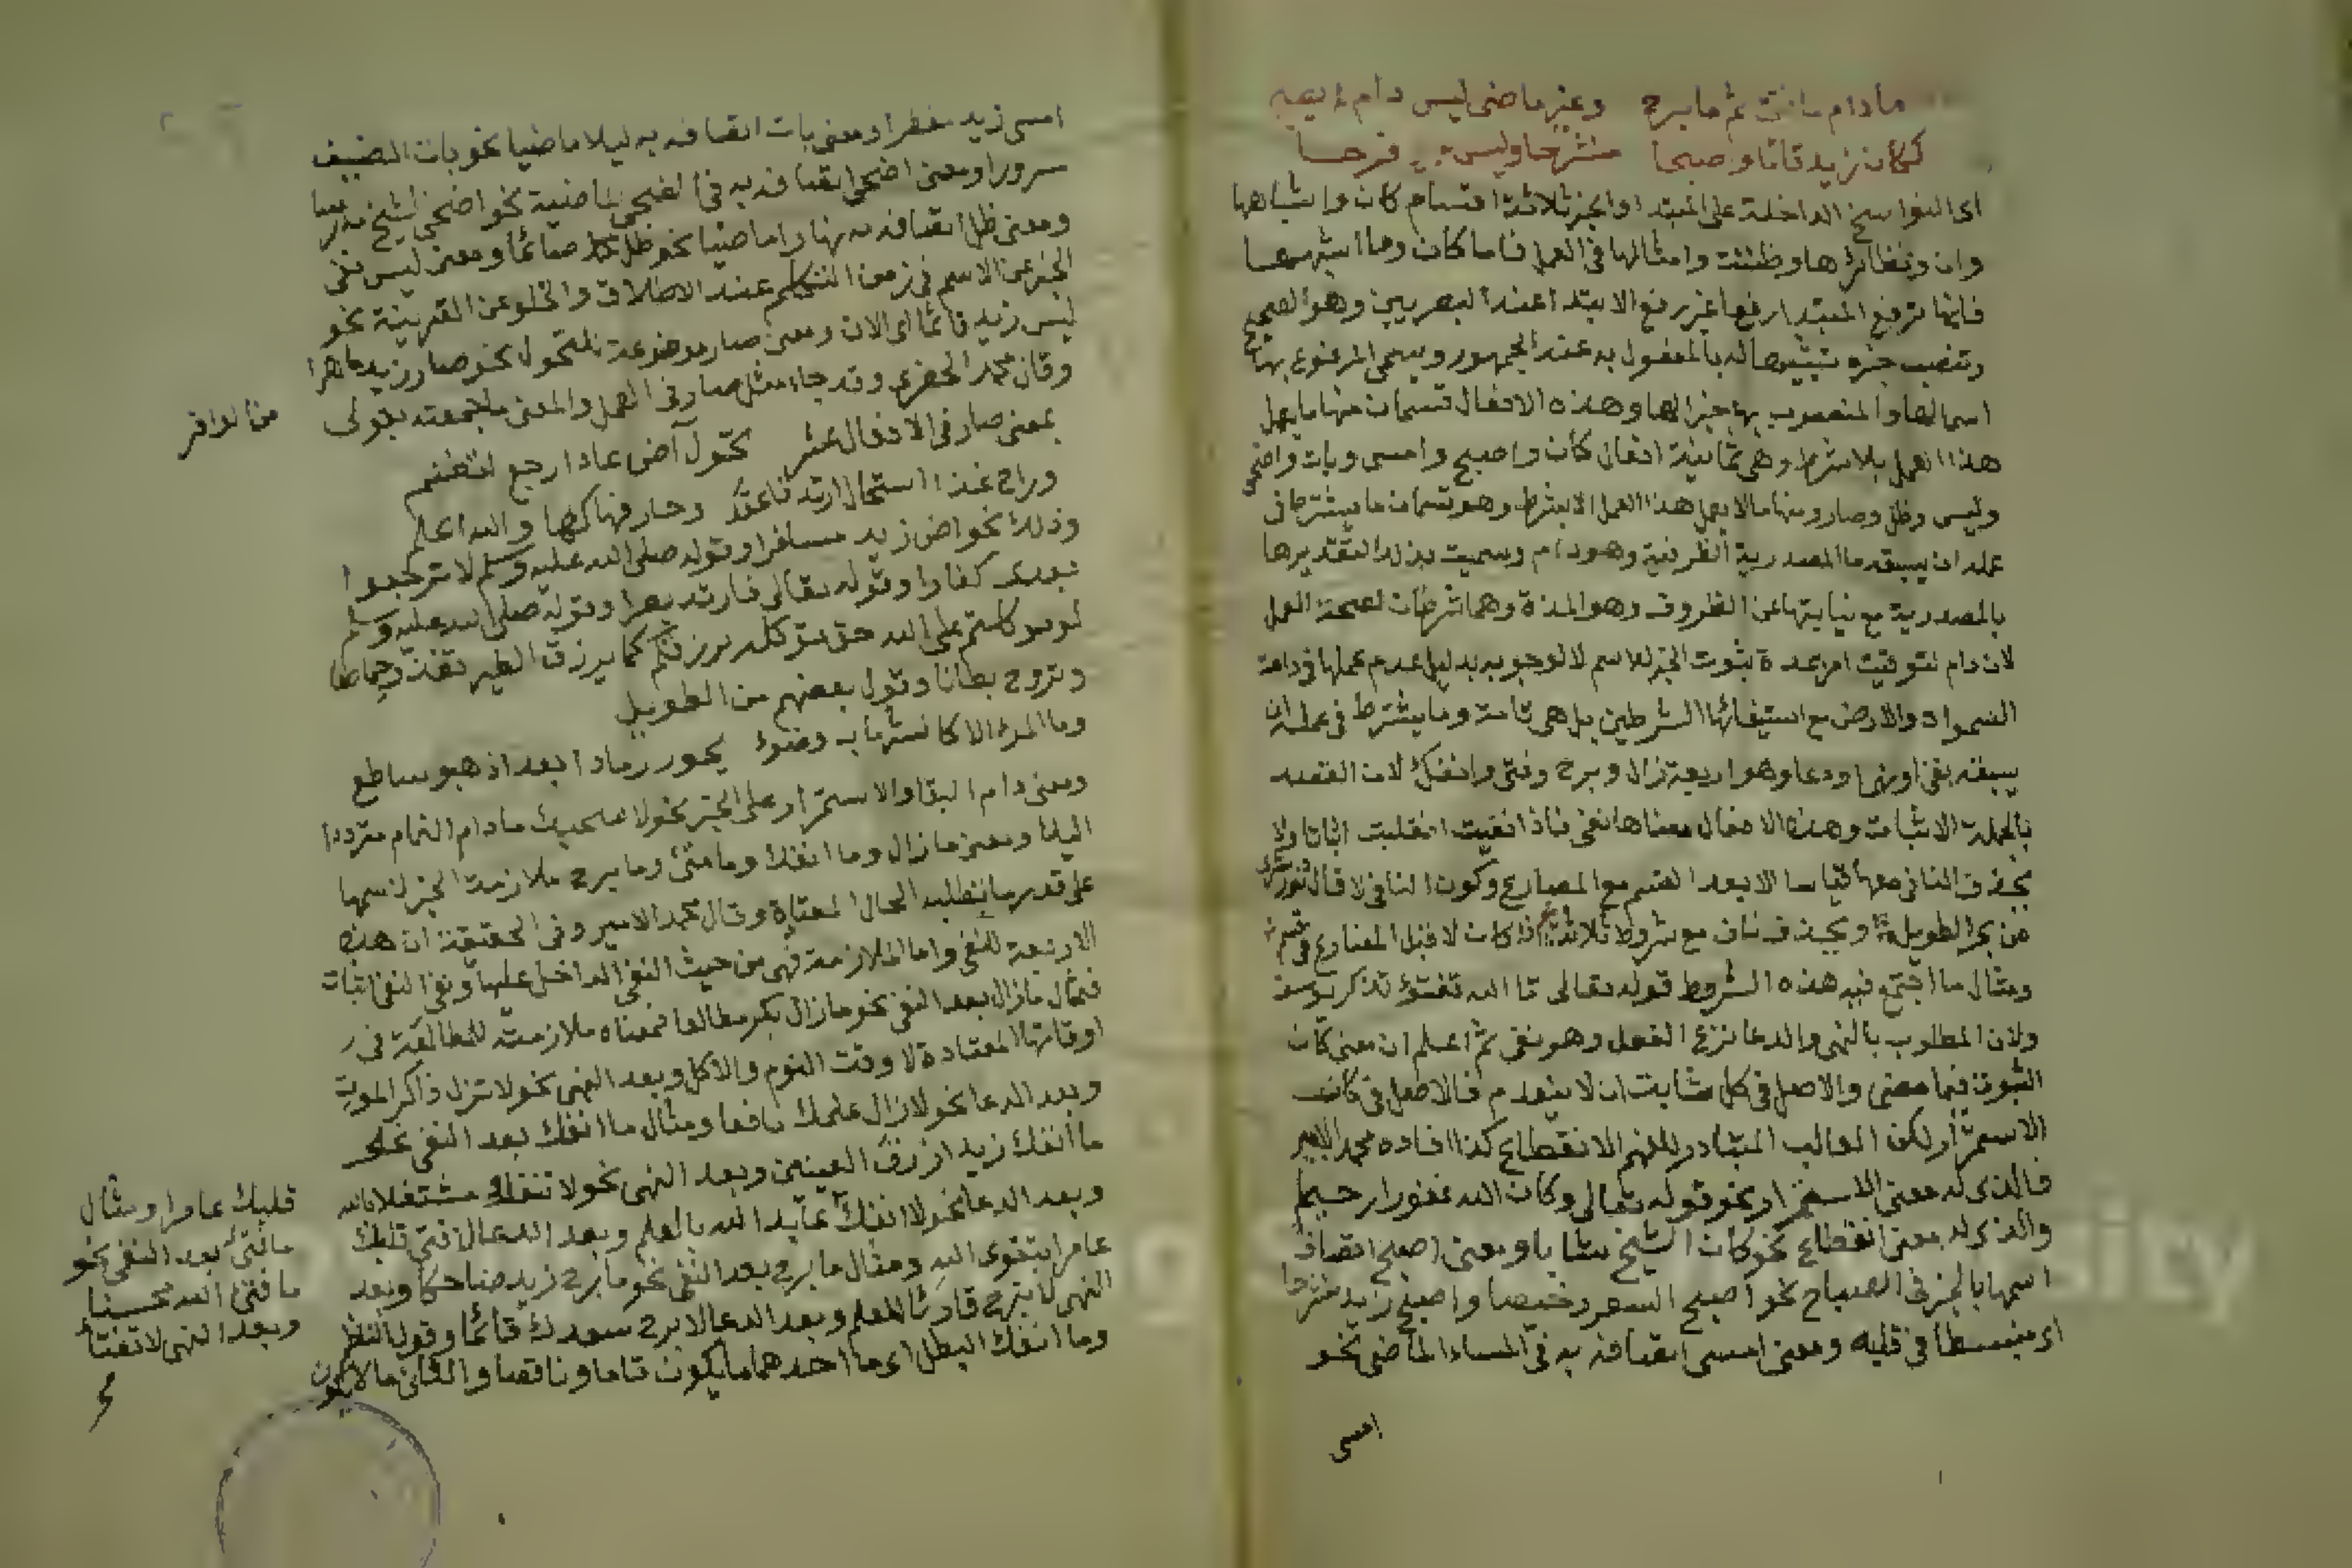 مادام ما فتئ ثم ما برح وغير ماضي ليس دام
ككان زيد قائما واصبحا منشرحا وليس فرحا
اى النواسخ الداخلة على المبتدا والخبر ثلاثة اقسام كان واشباهها
وان ونظائرها وظننت وامثالها فى العمل فاما كان وما اشبهها
فانها ترفع المبتدا رفعا غير رفع الابتدا عند البصريين وهو الصحيح
وتنصب خبره تشبيها له بالمفعول به عند الجمهور ويسمى المرفوع بها
اسما لها والمنصوب بها خبرا لها وهذه الافعال قسمان منها ما يعمل
هذا العمل بلا شرط وهى ثمانية افعال كان واصبح وامسى وبات واضحى
وليس وظل وصار ومنها ما لا يعمل هذا العمل الا بشرط وهو قسمان ما يشترط فى
عمله ان يسبقه ما المصدرية الظرفية وهو دام وسميت بذلك لتقديرها
بالمصدرية مع نيابتها عن الظروف وهو المدة وهما شرطان لصحة العمل
لان دام لتوقيت امر بمدة ثبوت الخبر للاسم لا لوجوبه بدليل عدم عملها فى دامت
السموات والارض مع استيفائها الشرطين بل هى تامة وما يشترط فى عمله ان
يسبقه نفى او نهى او دعا وهو اربعة زال وبرح وفتئ وانفك لان القصد
بالجملة الاثبات وهذه الافعال معناها نفى فاذا نفيت انقلبت اثباتا ولا
يحذف النافى معها قياسا الا بعد القسم مع المضارع وكون النافى لا قال
من بحر الطويل ويحذف ناف مع شروط ثلاثة اذا كان لا قبل المضارع فى قسم
ومثال ما اجتمع فيه هذه الشروط قوله تعالى تا الله تفتؤ تذكر يوسف
ولان المطلوب بالنهى والدعا نزع الفعل وهو نفى ثم اعلم ان معنى كان
الثبوت فيما مضى والاصل فى كل ثابت ان لا ينعدم فالاصل فى كان
الاستمرار لكن الغالب المتبادر للفهم الانقطاع كذا افاده محمد الامير
فالذى له معنى الاستمرار نحو قوله تعالى وكان الله غفورا رحيما
والذى له معنى انقطاع نحو كان الشيخ شابا ومعنى اصبح اتصاف
اسمها بالخبر فى الصباح نحو اصبح السعر رخيصا واصبح زيد منشرحا
اى منبسطا فى قلبه ومعنى امسى اتصافه به فى المساء الماضى نحو
امسى
امسى زيد مفطرا ومعنى بات اتصافه به ليلا ماضيا نحو بات الضيف
سرورا ومعنى اضحى اتصافه به فى الضحى الماضية نحو اضحى الشيخ مدرسا
ومعنى ظل اتصافه به نهارا ماضيا نحو ظل صائما ومعنى ليس نفى
الخبر عن الاسم فى زمن التكلم عند الاطلاق والخلو عن القرينة نحو
ليس زيد قائما اى الان ومعنى صار موضوعة للتحول نحو صار زيد ماهرا
وقال محمد الخضرى وقد جاء مثل صار فى العمل والمعنى ما جمعته بقولى
من الوافر
بمعنى صار فى الافعال عشر تحول آض عاد ارجع لتغنم
وراح غدا استحال ارتد فاقعد وحار فهاكها والله اعلم
وذلك نحو آض زيد مسافرا وقوله صلى الله عليه وسلم لا ترجعوا
بعدى كفارا وقوله تعالى فارتد بصيرا وقوله صلى الله عليه وسلم
لو توكلتم على الله حق توكله لرزقكم كما يرزق الطير تغدو خماصا
وتروح بطانا وقول بعضهم من الطويل
وما المرء الا كالشهاب وضوئه يحور رمادا بعد اذ هو ساطع
ومعنى دام البقا والاستمرار على الخبر نحو لا اصحبك ما دام النمام مترددا
اليك ومعنى ما زال وما انفك وما فتئ وما برح ملازمة الخبر لاسمها
على قدر ما يتطلبه الحال المعتادة وقال محمد الامير وفى الحقيقة ان هذه
الاربعة للنفى واما الملازمة فهى من حيث النفى الداخل عليها ونفى النفى اثبات
فمثال ما زال بعد النفى نحو ما زال بكر مطالعا فمعناه ملازمته للمطالعة فى
اوقاتها المعتادة لا وقت النوم والاكل وبعد النهى نحو لا تزل ذاكر الموت
وبعد الدعا نحو لا زال علمك نافعا ومثال ما انفك بعد النفى نحو
ما انفك زيد ازرق العينين وبعد النهى نحو لا تنفك مشتغلا بالله
وبعد الدعا نحو لا انفك عابد الله بالعلم وبعد الدعا لا فتئ قلبك
عامرا بتقوى الله ومثال ما برح بعد النفى نحو ما برح زيد ضاحكا وبعد
النهى لا تبرح قارئا للعلم وبعد الدعا لا برح سعدك قائما وقول الناظم
وما انفك البطل اى ما احدهما ما يكون تاما وناقصا والثانى ما لا يكون
قلبك عامرا ومثال
ما فتئ بعد النفى نحو
ما فتئ الله محسنا
وبعد النهى لا تفتأ